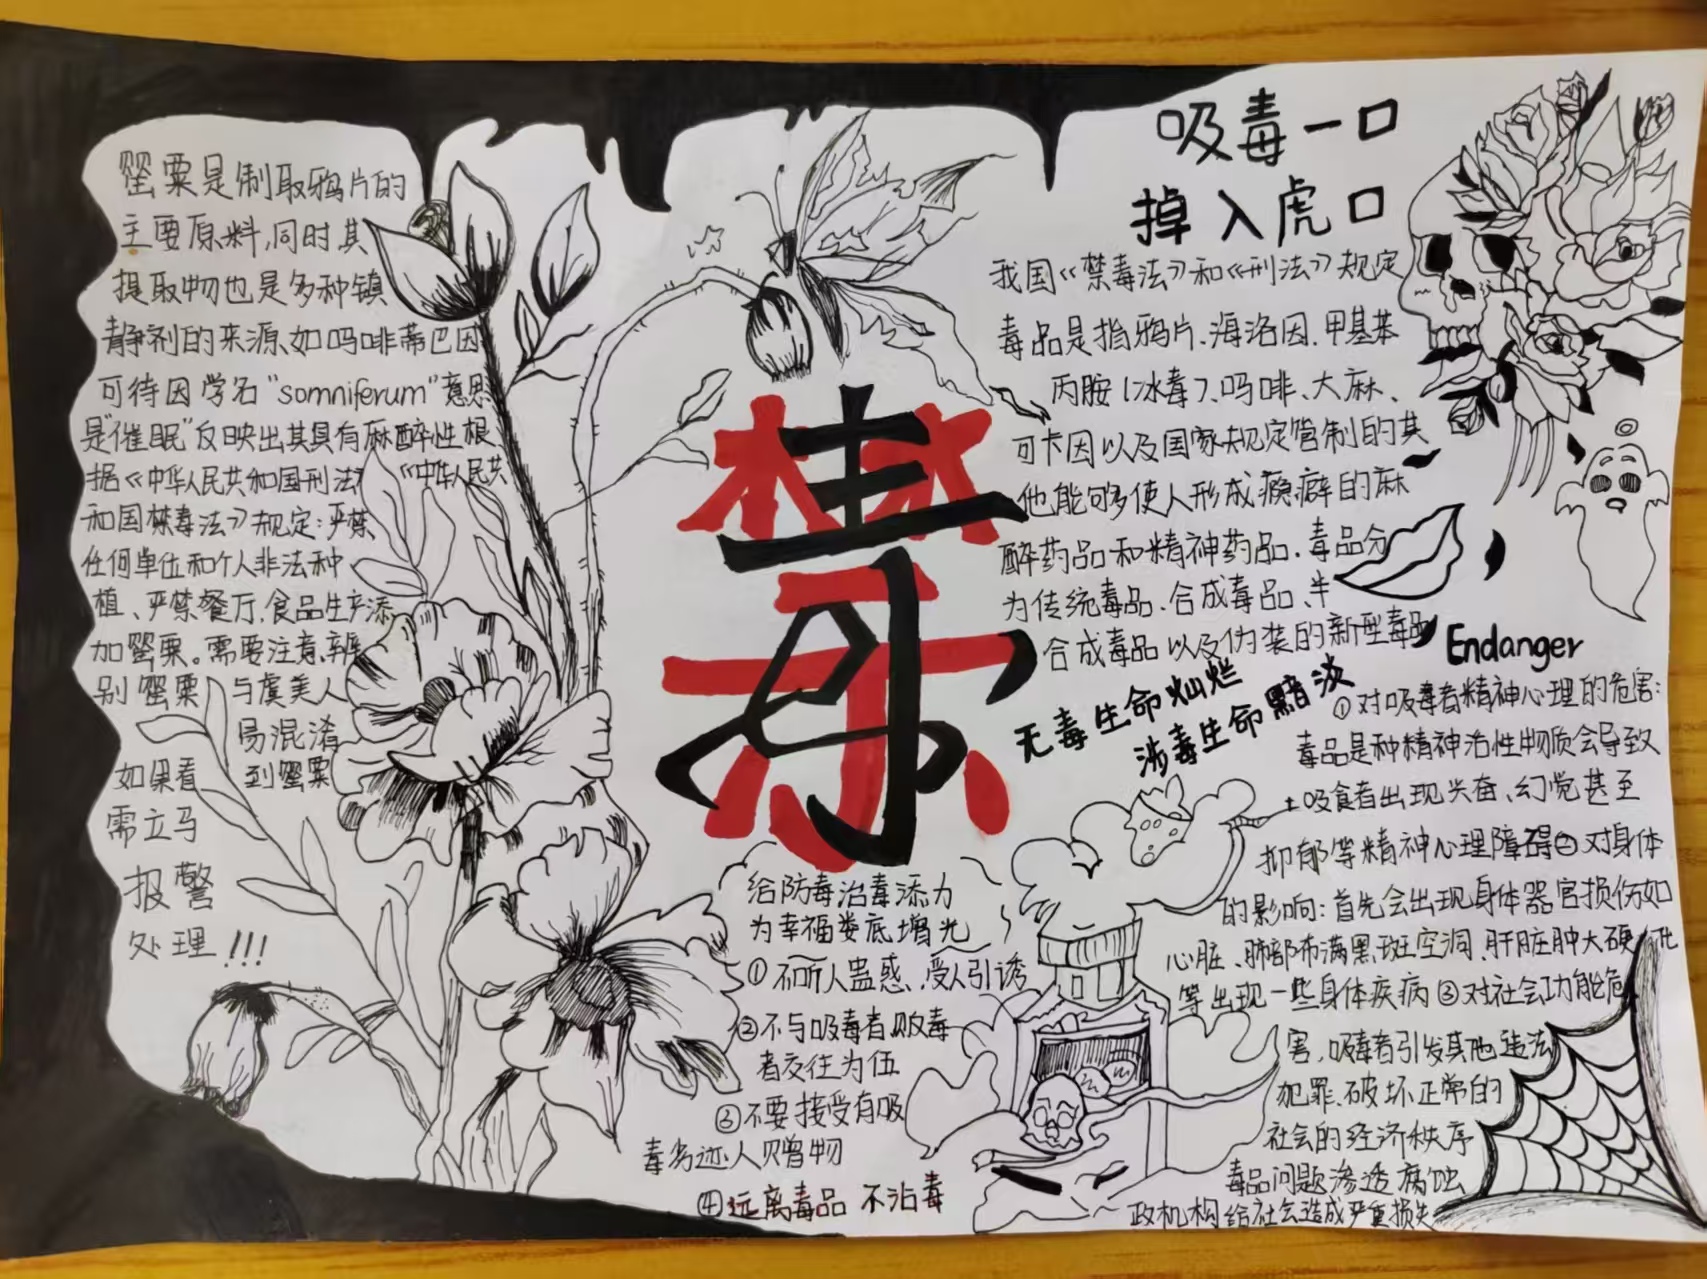 罂粟是制取鸦片的
主要原料,同时其
提取物也是多种镇
静剂的来源、如吗啡蒂巴因
可待因学名“somniferum”意思
是“催眠”反映出其具有麻醉性根
据《中华人民共和国刑法》《中华人民共
和国禁毒法》规定:严禁
任何单位和个人非法种
植、严禁餐厅、食品生产添
加罂粟。需要注意、辨
别罂粟与虞美人
易混淆
到罂粟
如果看
需立马
报警
处理!!!
禁
毒
给防毒治毒添力
为幸福娄底增光
①不听人蛊惑、受人引诱
②不与吸毒者贩毒
者交往为伍
③不要接受有吸
毒劣迹人赠物
④远离毒品 不沾毒
吸毒一口
掉入虎口
我国《禁毒法》和《刑法》规定
毒品是指鸦片、海洛因、甲基苯
丙胺(冰毒)、吗啡、大麻、
可卡因以及国家规定管制的其
他能够使人形成瘾癖的麻
醉药品和精神药品、毒品分
为传统毒品、合成毒品、半
合成毒品以及伪装的新型毒品
无毒生命灿烂
涉毒生命黯淡
Endanger
①对吸毒者精神心理的危害:
毒品是种精神活性物质会导致
吸食者出现兴奋、幻觉甚至
抑郁等精神心理障碍②对身体
的影响:首先会出现身体器官损伤如
心脏、肺部布满黑斑空洞、肝脏肿大硬化
等出现一些身体疾病③对社会功能危
害,吸毒者引发其他违法
犯罪、破坏正常的
社会的经济秩序
毒品问题渗透腐蚀
政机构给社会造成严重损失